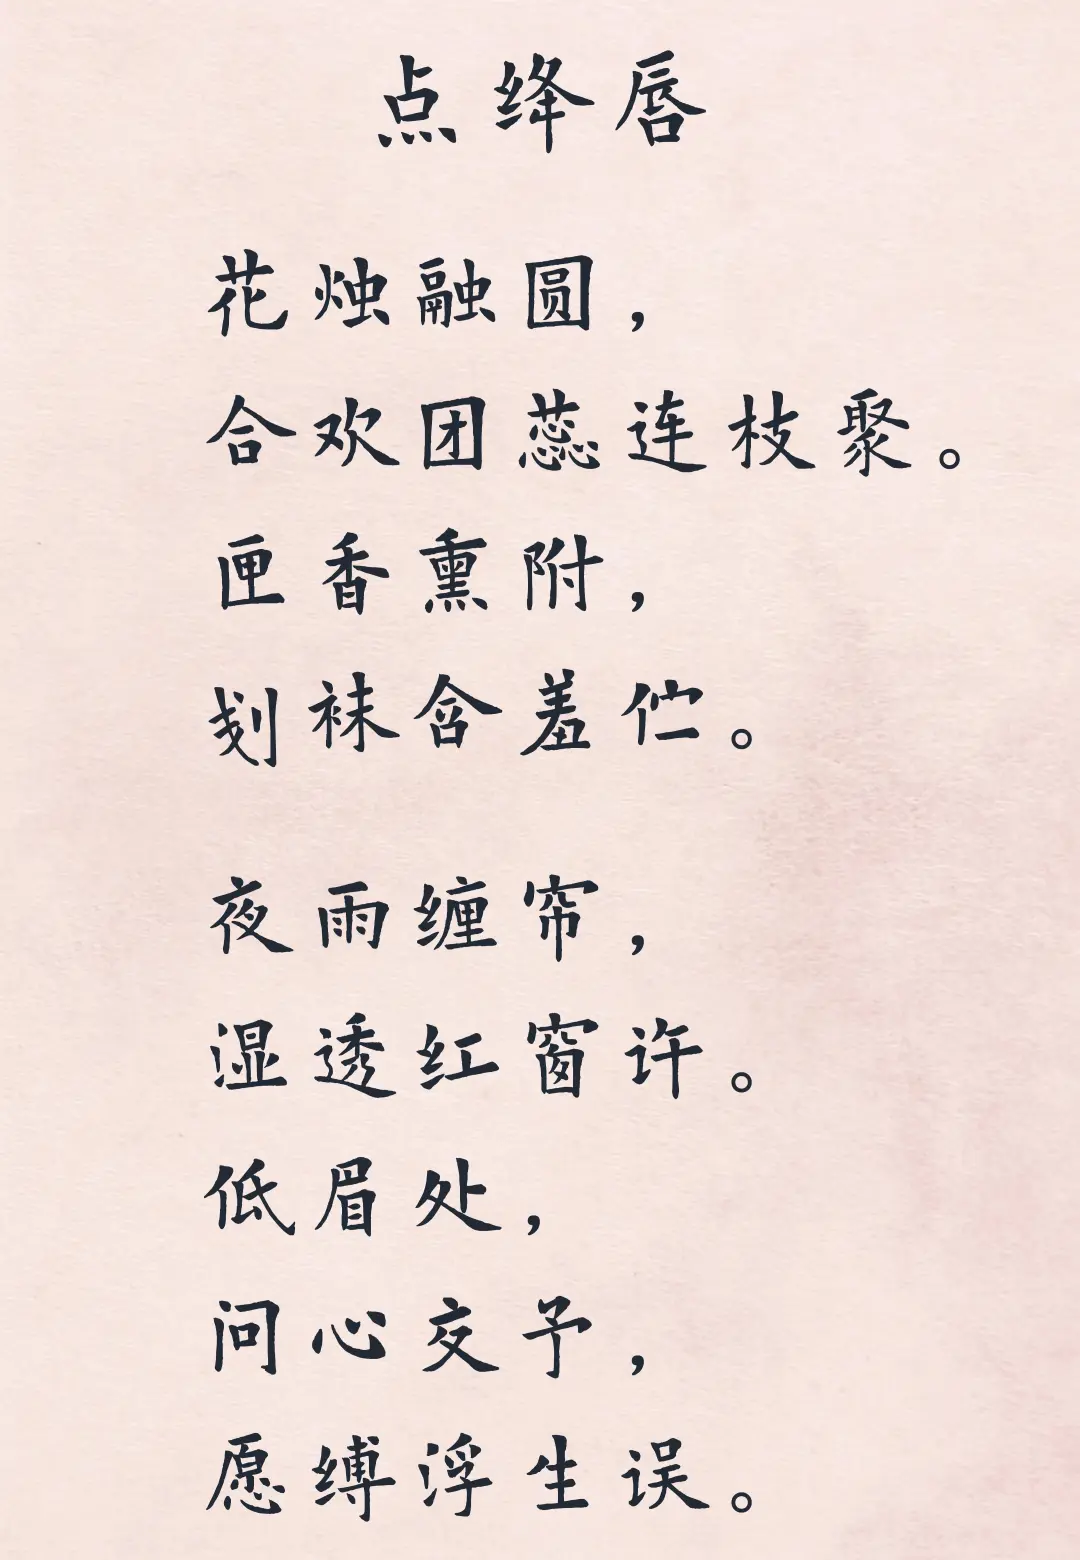 点绛唇
花烛融圆，
合欢团蕊连枝聚。
匣香熏附，
刬袜含羞伫。
夜雨缠帘，
湿透红窗许。
低眉处，
问心交予，
愿缚浮生误。